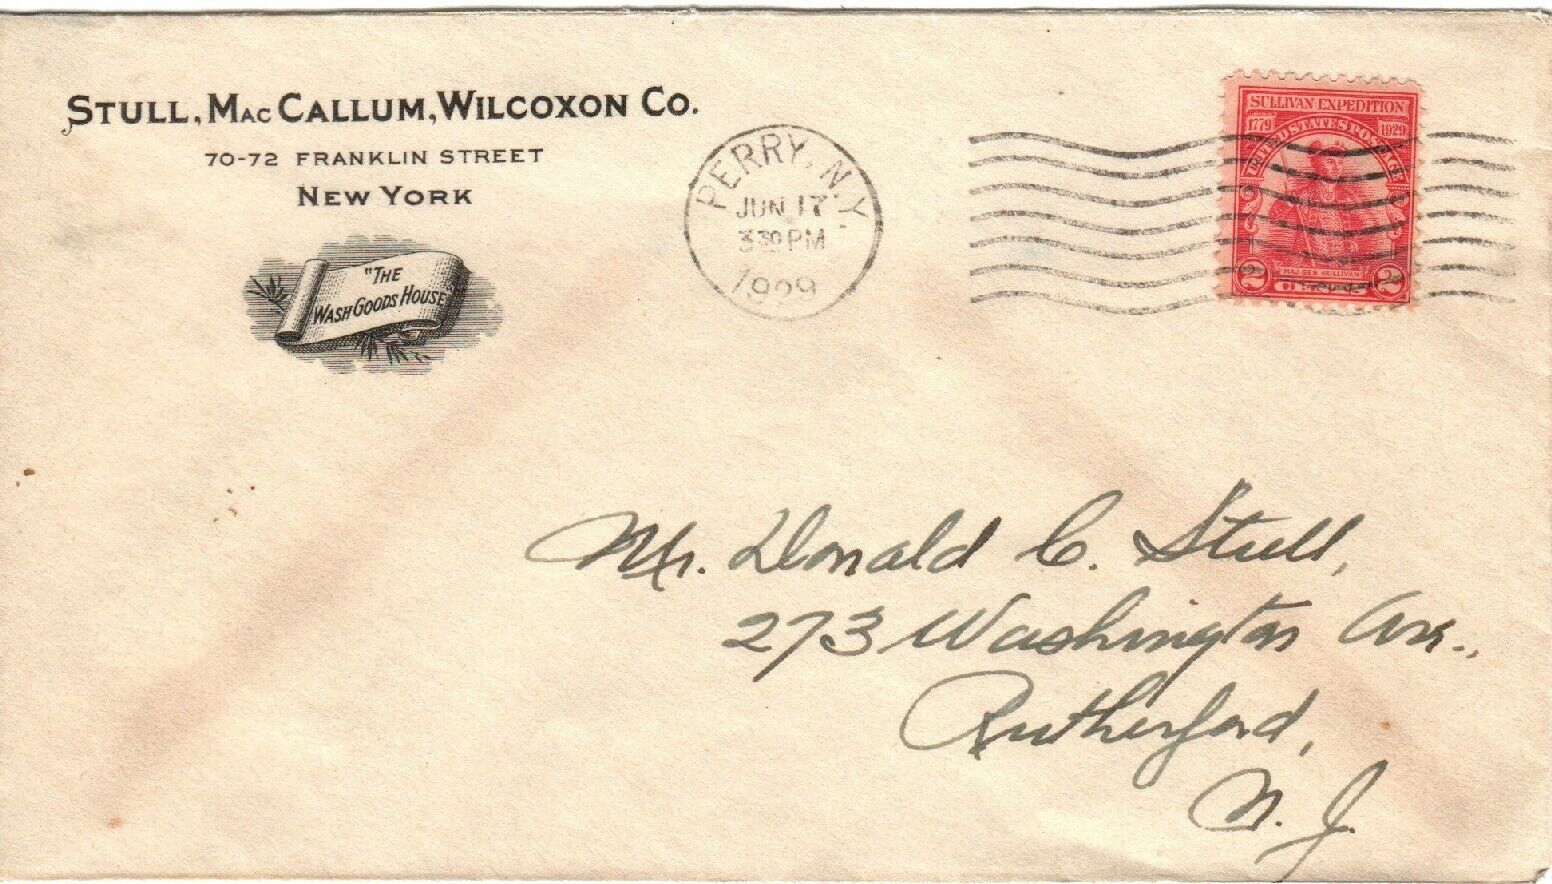 STULL, MAC CALLUM, WILCOXON CO.
70-72 FRANKLIN STREET
NEW YORK
"THE
WASH GOODS HOUSE"
PERRY, N.Y.
JUN 17
3 30 PM
1929
SULLIVAN EXPEDITION
1779 1929
UNITED STATES POSTAGE
MAJ. GEN. SULLIVAN
2 CENTS 2
Mr. Donald C. Stull,
273 Washington Ave.,
Rutherford,
N. J.